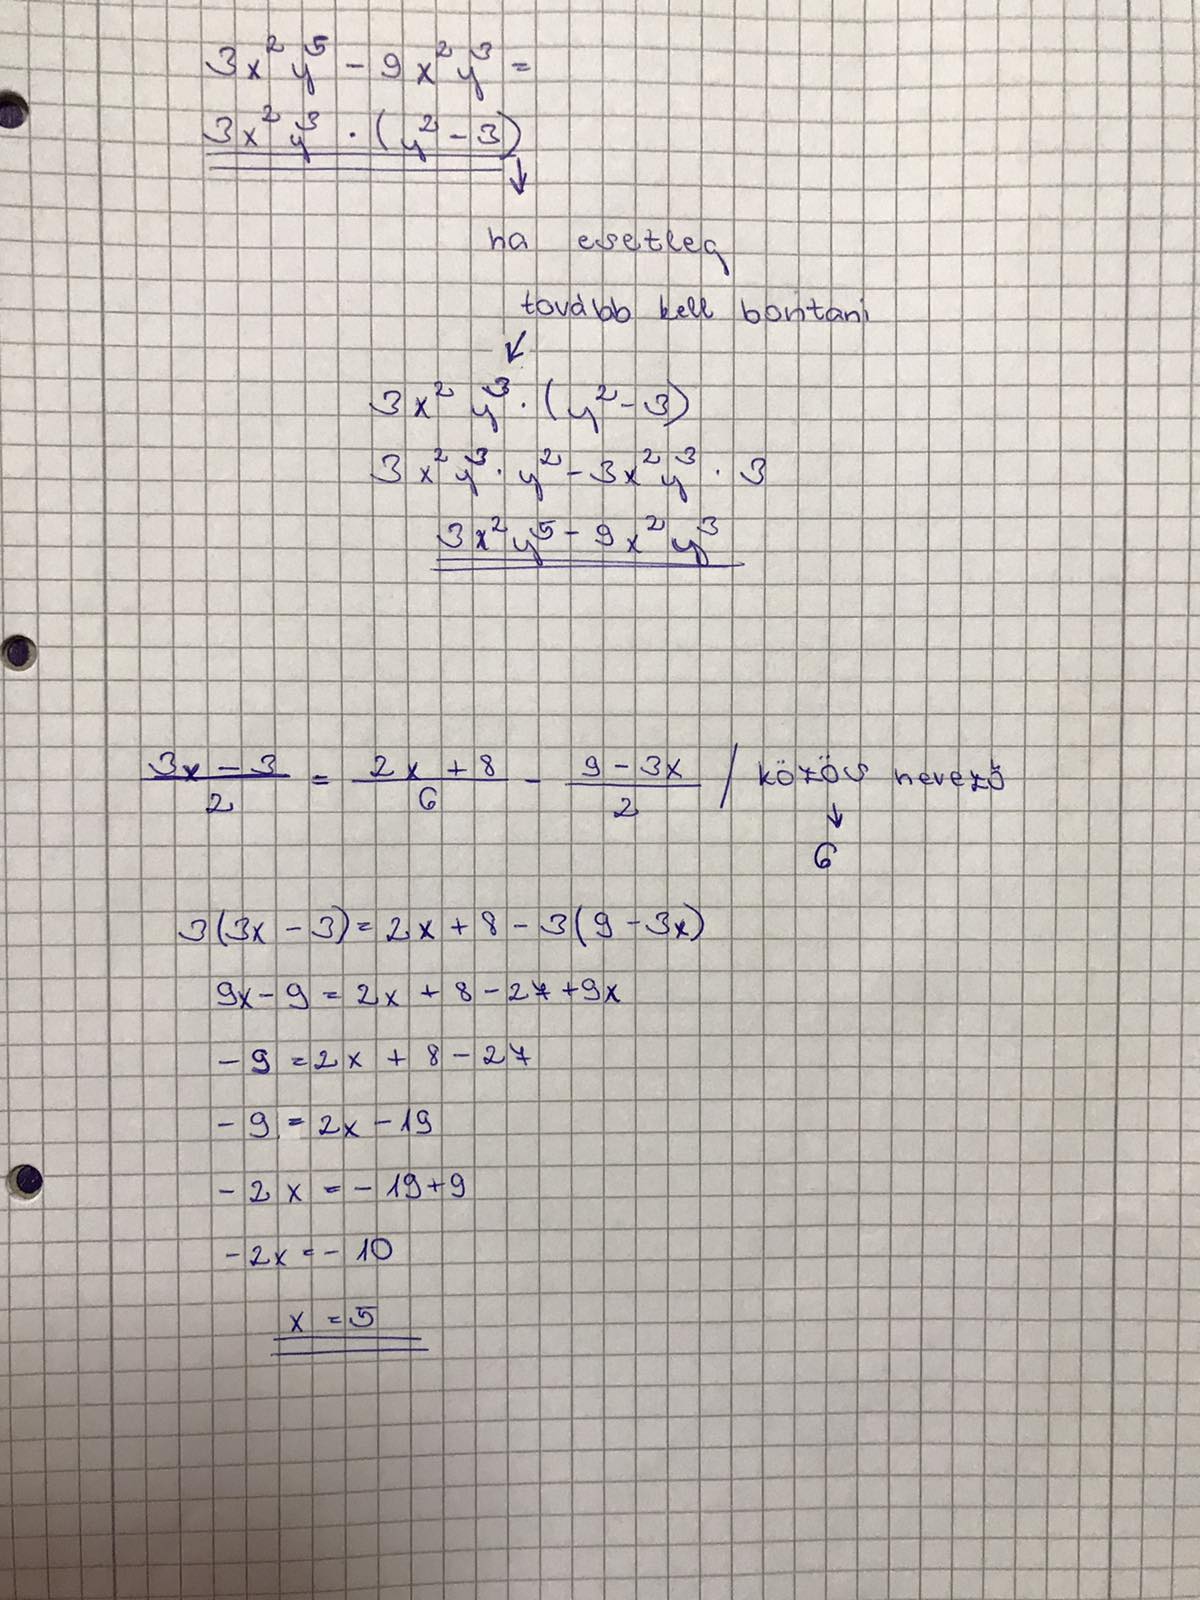 3x² y⁵ - 9x² y³ =
3x² y³ · (y² - 3)
↓
ha esetleg
tovább kell bontani
↙
3x² y³ · (y² - 3)
3x² y³ · y² - 3x² y³ · 3
3x² y⁵ - 9x² y³
(3x - 3)/2 = (2x + 8)/6 - (9 - 3x)/2 / közös nevező
↓
6
3(3x - 3) = 2x + 8 - 3(9 - 3x)
9x - 9 = 2x + 8 - 27 + 9x
- 9 = 2x + 8 - 27
- 9 = 2x - 19
- 2x = - 19 + 9
- 2x = - 10
x = 5